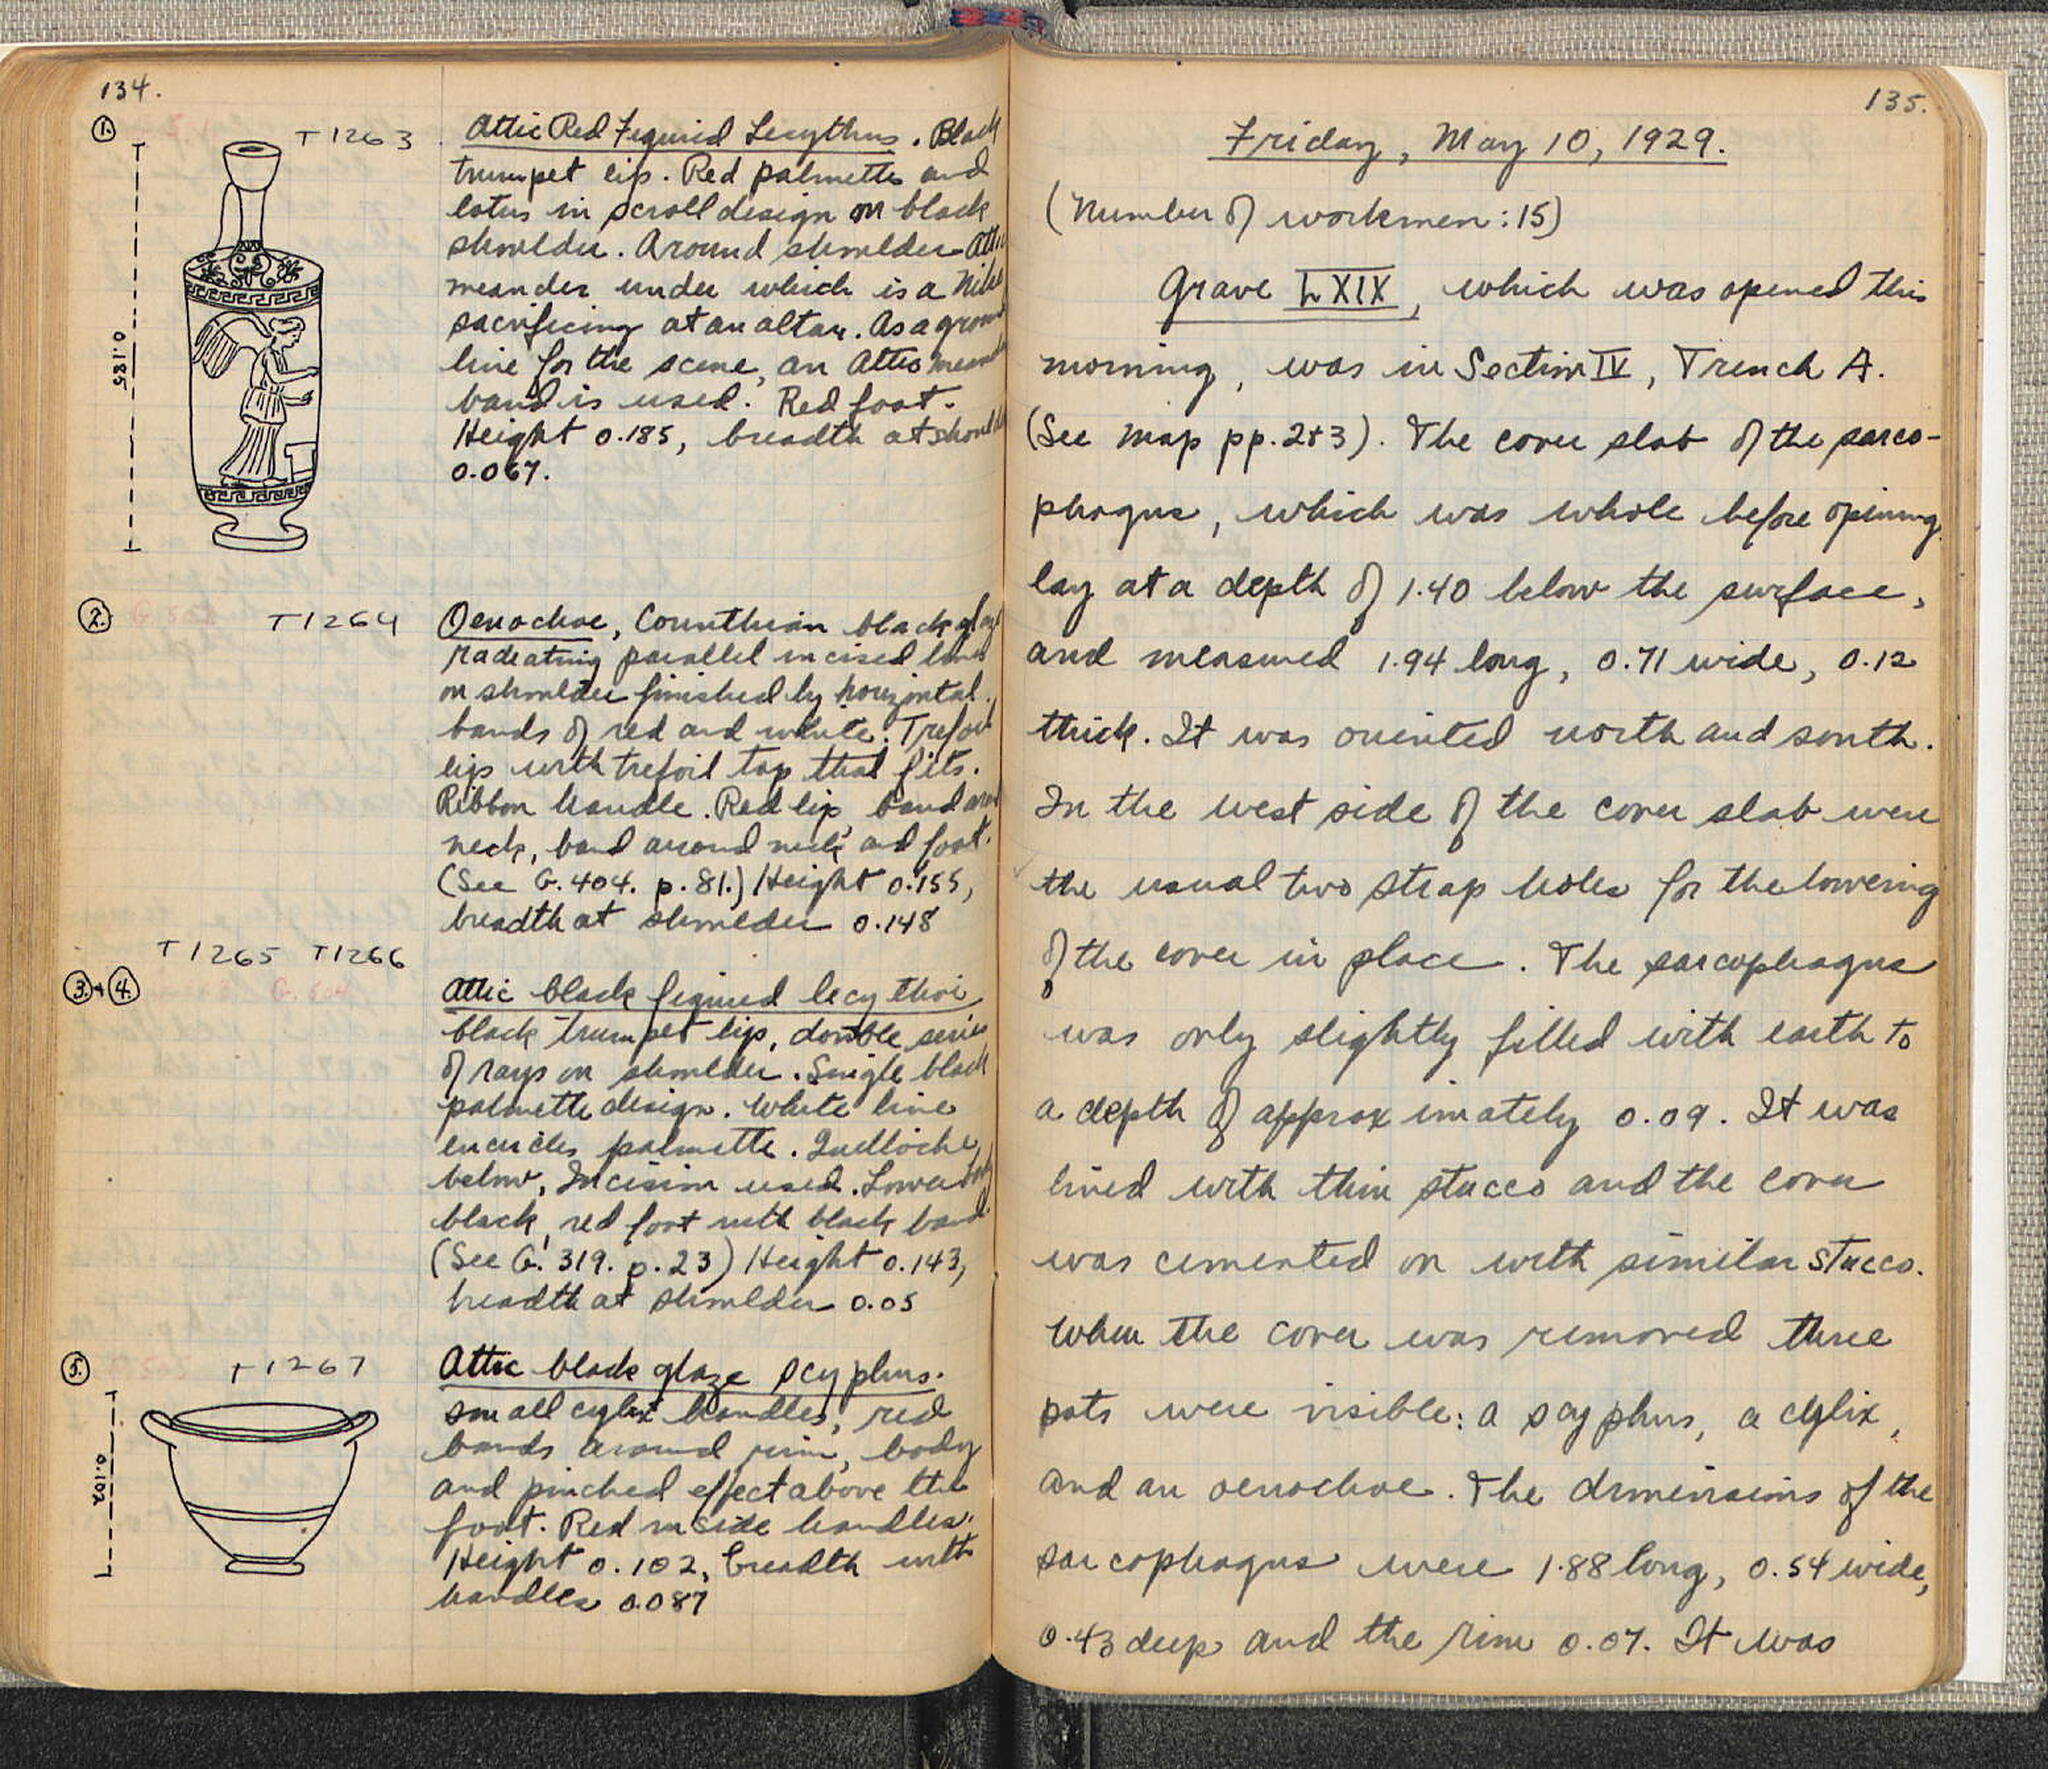 134.
1. T1263
Attic Red Figured Lecythus. Black
trumpet lip. Red palmette and
lotus in scroll design on black
shoulder. Around shoulder Attic
meander under which is a Nike
sacrificing at an altar. As a ground
line for the scene, an Attic meander
band is used. Red foot.
Height 0.185, breadth at shoulder
0.067.
0.185
2. T1264
Oenochoe, Corinthian black glaze
radiating parallel incised lines
on shoulder finished by horizontal
bands of red and white. Trefoil
lip with trefoil top that fits.
Ribbon handle. Red lip, band around
neck, band around neck and foot.
(See G. 404. p. 81.) Height 0.155,
breadth at shoulder 0.148
T1265 T1266
3. + 4. G. 504
Attic black figured lecythoi
black trumpet lip, double series
of rays on shoulder. Single black
palmette design. White line
encircles palmette. Guilloche
below. Incision used. Lower
black, red foot with black band.
(See G. 319. p. 23) Height 0.143,
breadth at shoulder 0.05
5. T1267
Attic black glaze scyphus.
small cylix handles, red
bands around rim, body
and pinched effect above the
foot. Red inside handles.
Height 0.102, breadth with
handles 0.087
0.102
135.
Friday, May 10, 1929.
(Number of workmen: 15)
Grave LXIX, which was opened this
morning, was in Section IV, Trench A.
(See map pp. 2+3). The cover slab of the sarco-
phagus, which was whole before opening
lay at a depth of 1.40 below the surface,
and measured 1.94 long, 0.71 wide, 0.12
thick. It was oriented north and south.
In the west side of the cover slab were
the usual two strap holes for the lowering
of the cover in place. The sarcophagus
was only slightly filled with earth to
a depth of approximately 0.09. It was
lined with thin stucco and the cover
was cemented on with similar stucco.
When the cover was removed three
pots were visible: a scyphus, a cylix,
and an oenochoe. The dimensions of the
sarcophagus were 1.88 long, 0.54 wide,
0.43 deep and the rim 0.07. It was